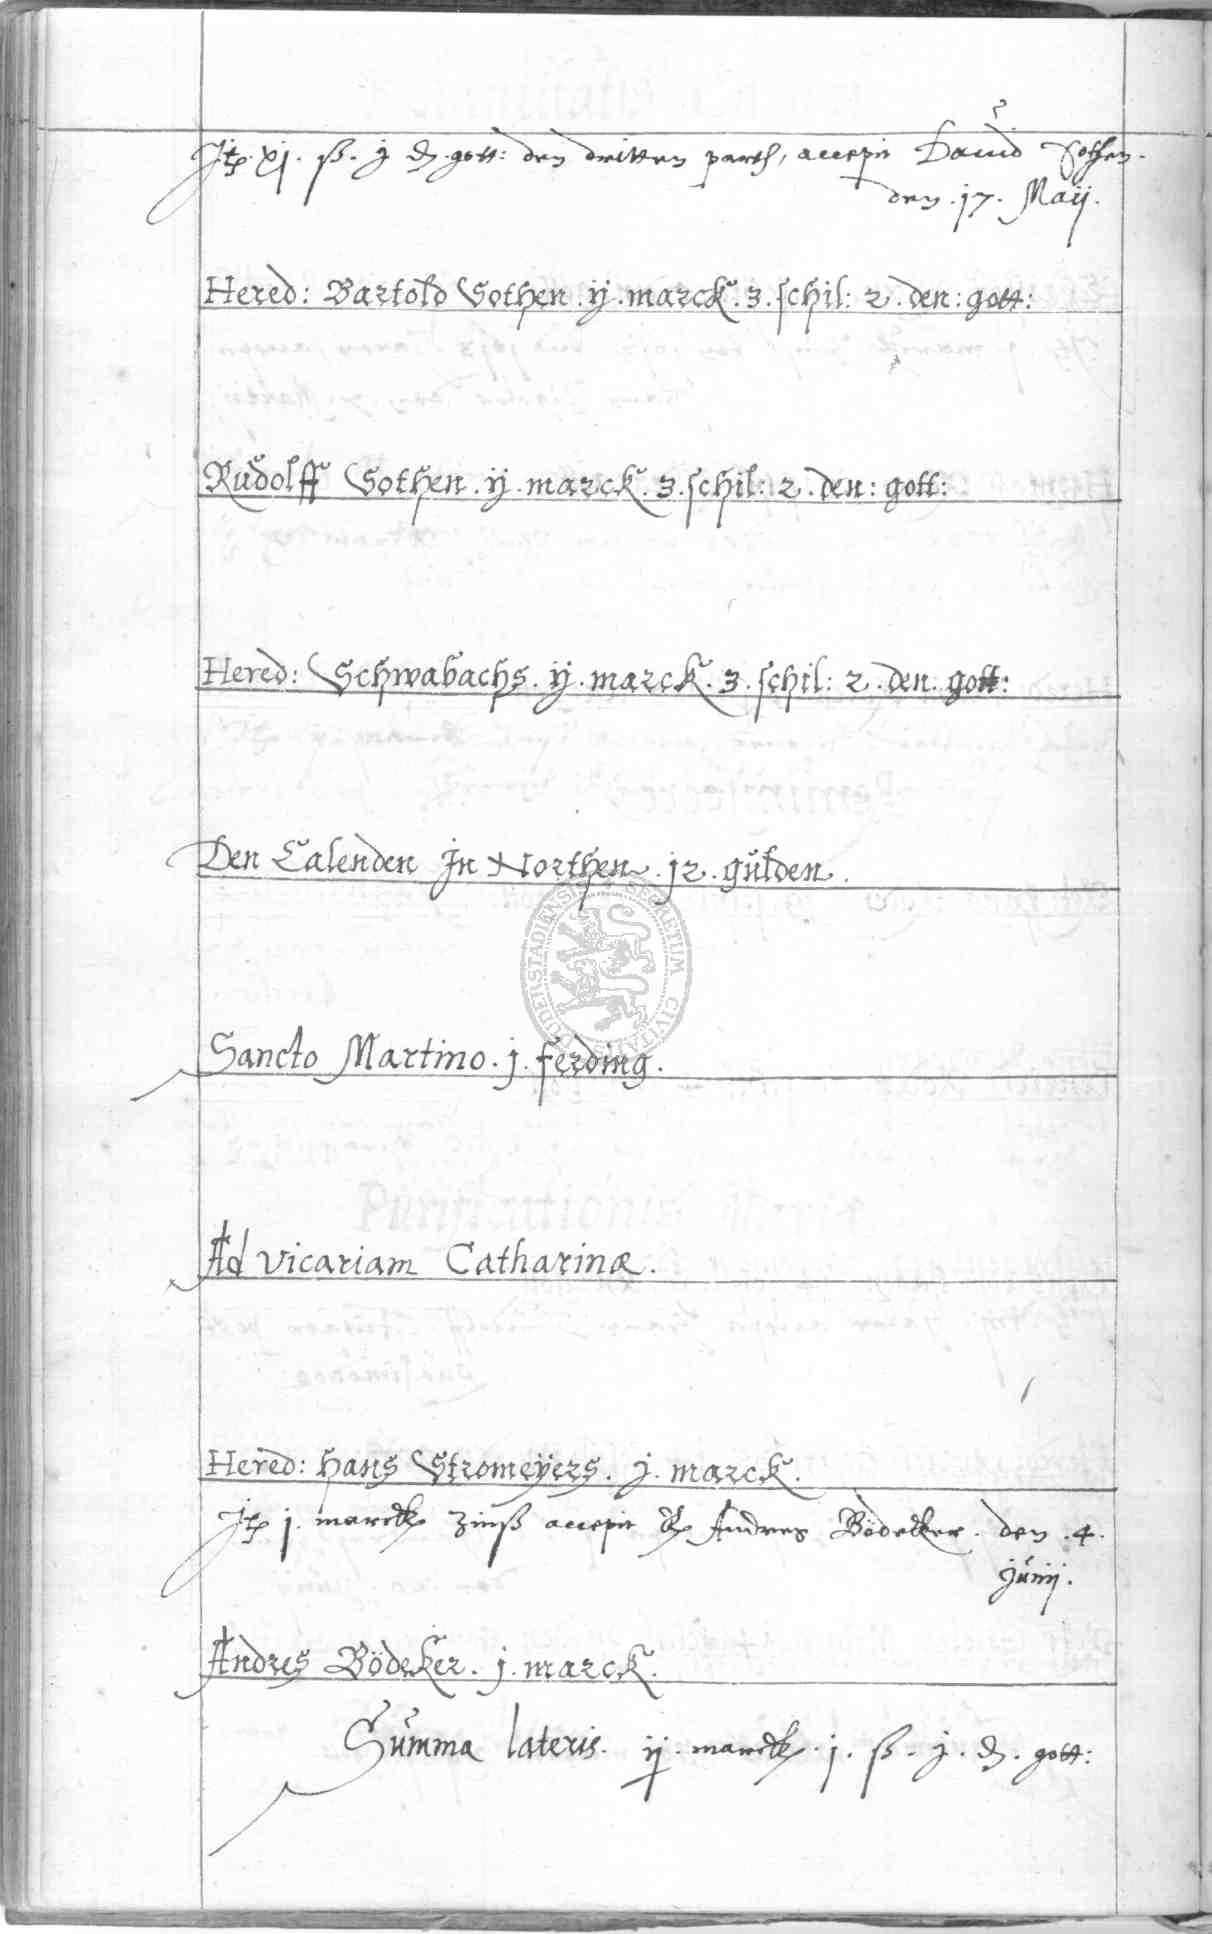 Jt xj. ß. j ₰. gott: den dritten parth, accepit Dauid Sothen.
den .17. Maij.
Hered: Bartold Sothen . ij . marck . 3 . schil: 2 . den: gott:
Rudolff Sothen . ij . marck . 3 . schil: 2 . den: gott:
Hered: Schwabachs . ij . marck . 3 . schil: 2 . den: gott:
Den Calenden Jn Northen . 12 . gulden .
DUDERSTADIENSIS SECRETUM CIVITATIS
Sancto Martino . j . ferding .
Ad vicariam Catharinæ .
Hered: Hans Stromeÿers . j . marck .
Jt j . marck Zinß accepit Andres Bödeker . den . 4 .
Junij .
Andres Bödeker . j . marck .
Summa lateris . ij . marck . j . ß . j . ₰ . gott: